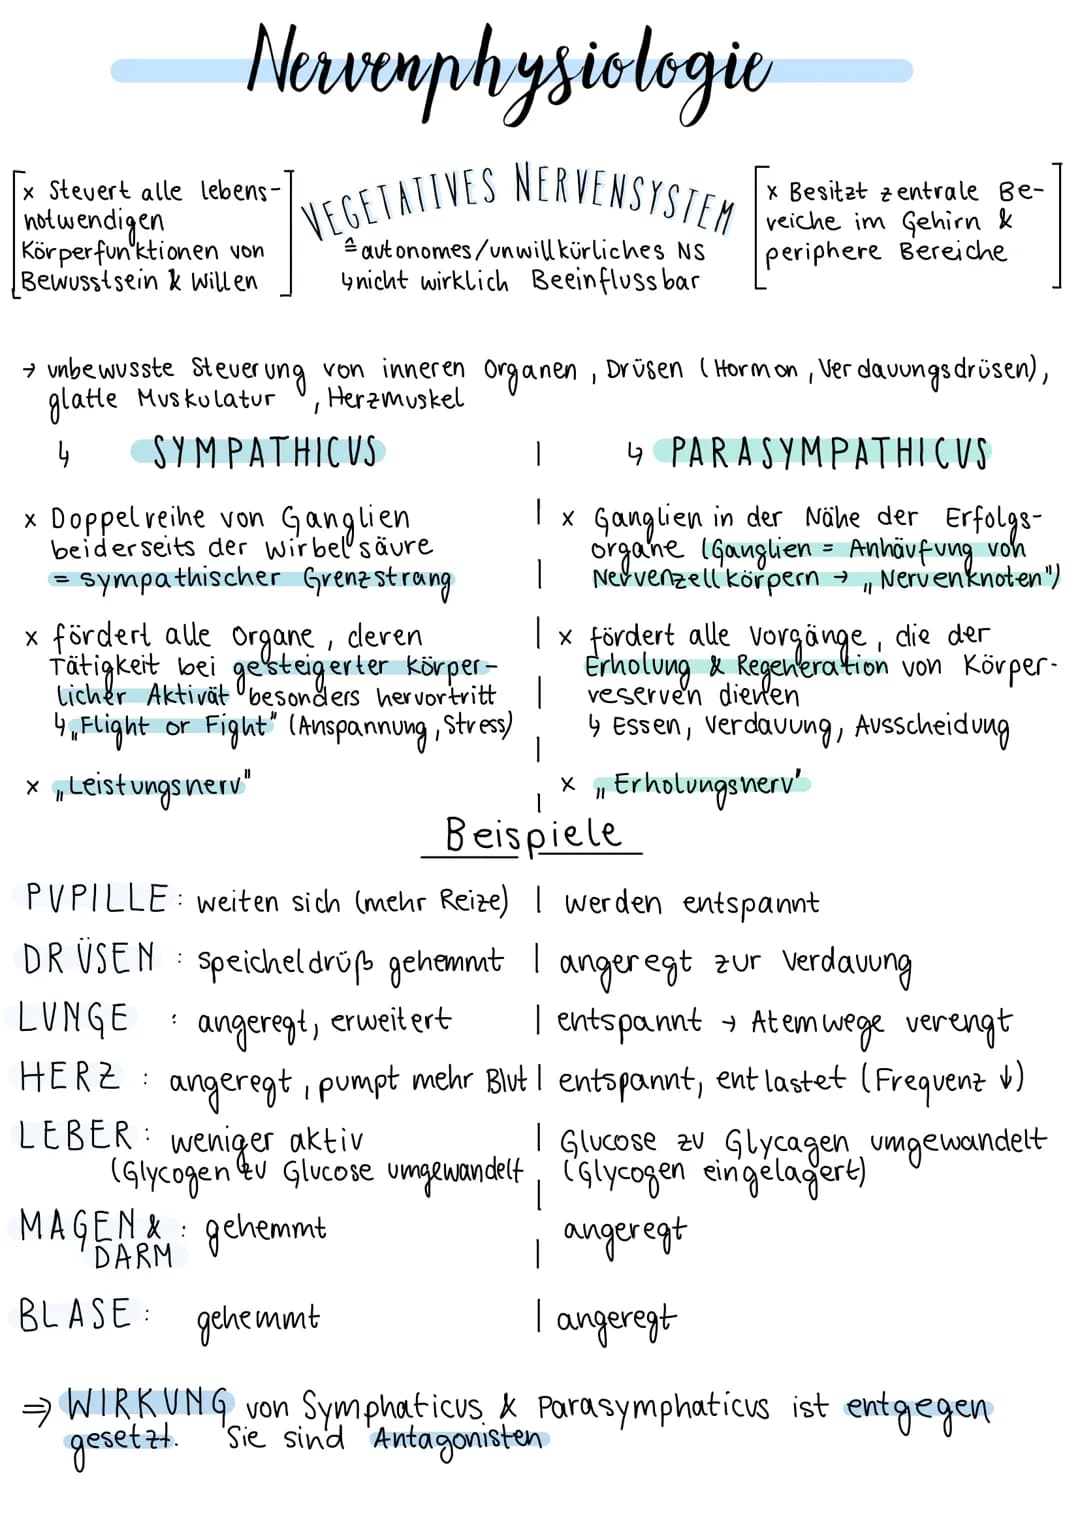 Nervenphysiologie
x Steuert alle lebens-
notwendigen
Körperfunktionen von
Bewusstsein & Willen
VEGETATIVES NERVENSYSTEM
≙ autonomes/unwillkürliches NS
↳ nicht wirklich Beeinflussbar
x Besitzt zentrale Be-
reiche im Gehirn &
periphere Bereiche
→ unbewusste Steuerung von inneren Organen, Drüsen (Hormon, Verdauungsdrüsen),
glatte Muskulatur, Herzmuskel
↳ SYMPATHICUS
x Doppelreihe von Ganglien
beiderseits der Wirbelsäure
= sympathischer Grenzstrang
x fördert alle Organe, deren
Tätigkeit bei gesteigerter körper-
licher Aktivät besonders hervortritt
↳ „Flight or Fight" (Anspannung, Stress)
x „Leistungsnerv"
↳ PARASYMPATHICUS
x Ganglien in der Nähe der Erfolgs-
organe (Ganglien = Anhäufung von
Nervenzellkörpern → „Nervenknoten")
x fördert alle Vorgänge, die der
Erholung & Regeneration von Körper-
reserven dienen
↳ Essen, Verdauung, Ausscheidung
x „Erholungsnerv'
Beispiele
PUPILLE: weiten sich (mehr Reize) | werden entspannt
DRÜSEN : Speicheldrüß gehemmt | angeregt zur Verdauung
LUNGE : angeregt, erweitert | entspannt → Atemwege verengt
HERZ : angeregt, pumpt mehr Blut | entspannt, entlastet (Frequenz ↓)
LEBER: weniger aktiv | Glucose zu Glycagen umgewandelt
(Glycogen zu Glucose umgewandelt | (Glycogen eingelagert)
MAGEN & : gehemmt | angeregt
DARM
BLASE: gehemmt | angeregt
⇒ WIRKUNG von Symphaticus & Parasymphaticus ist entgegen
gesetzt. Sie sind Antagonisten